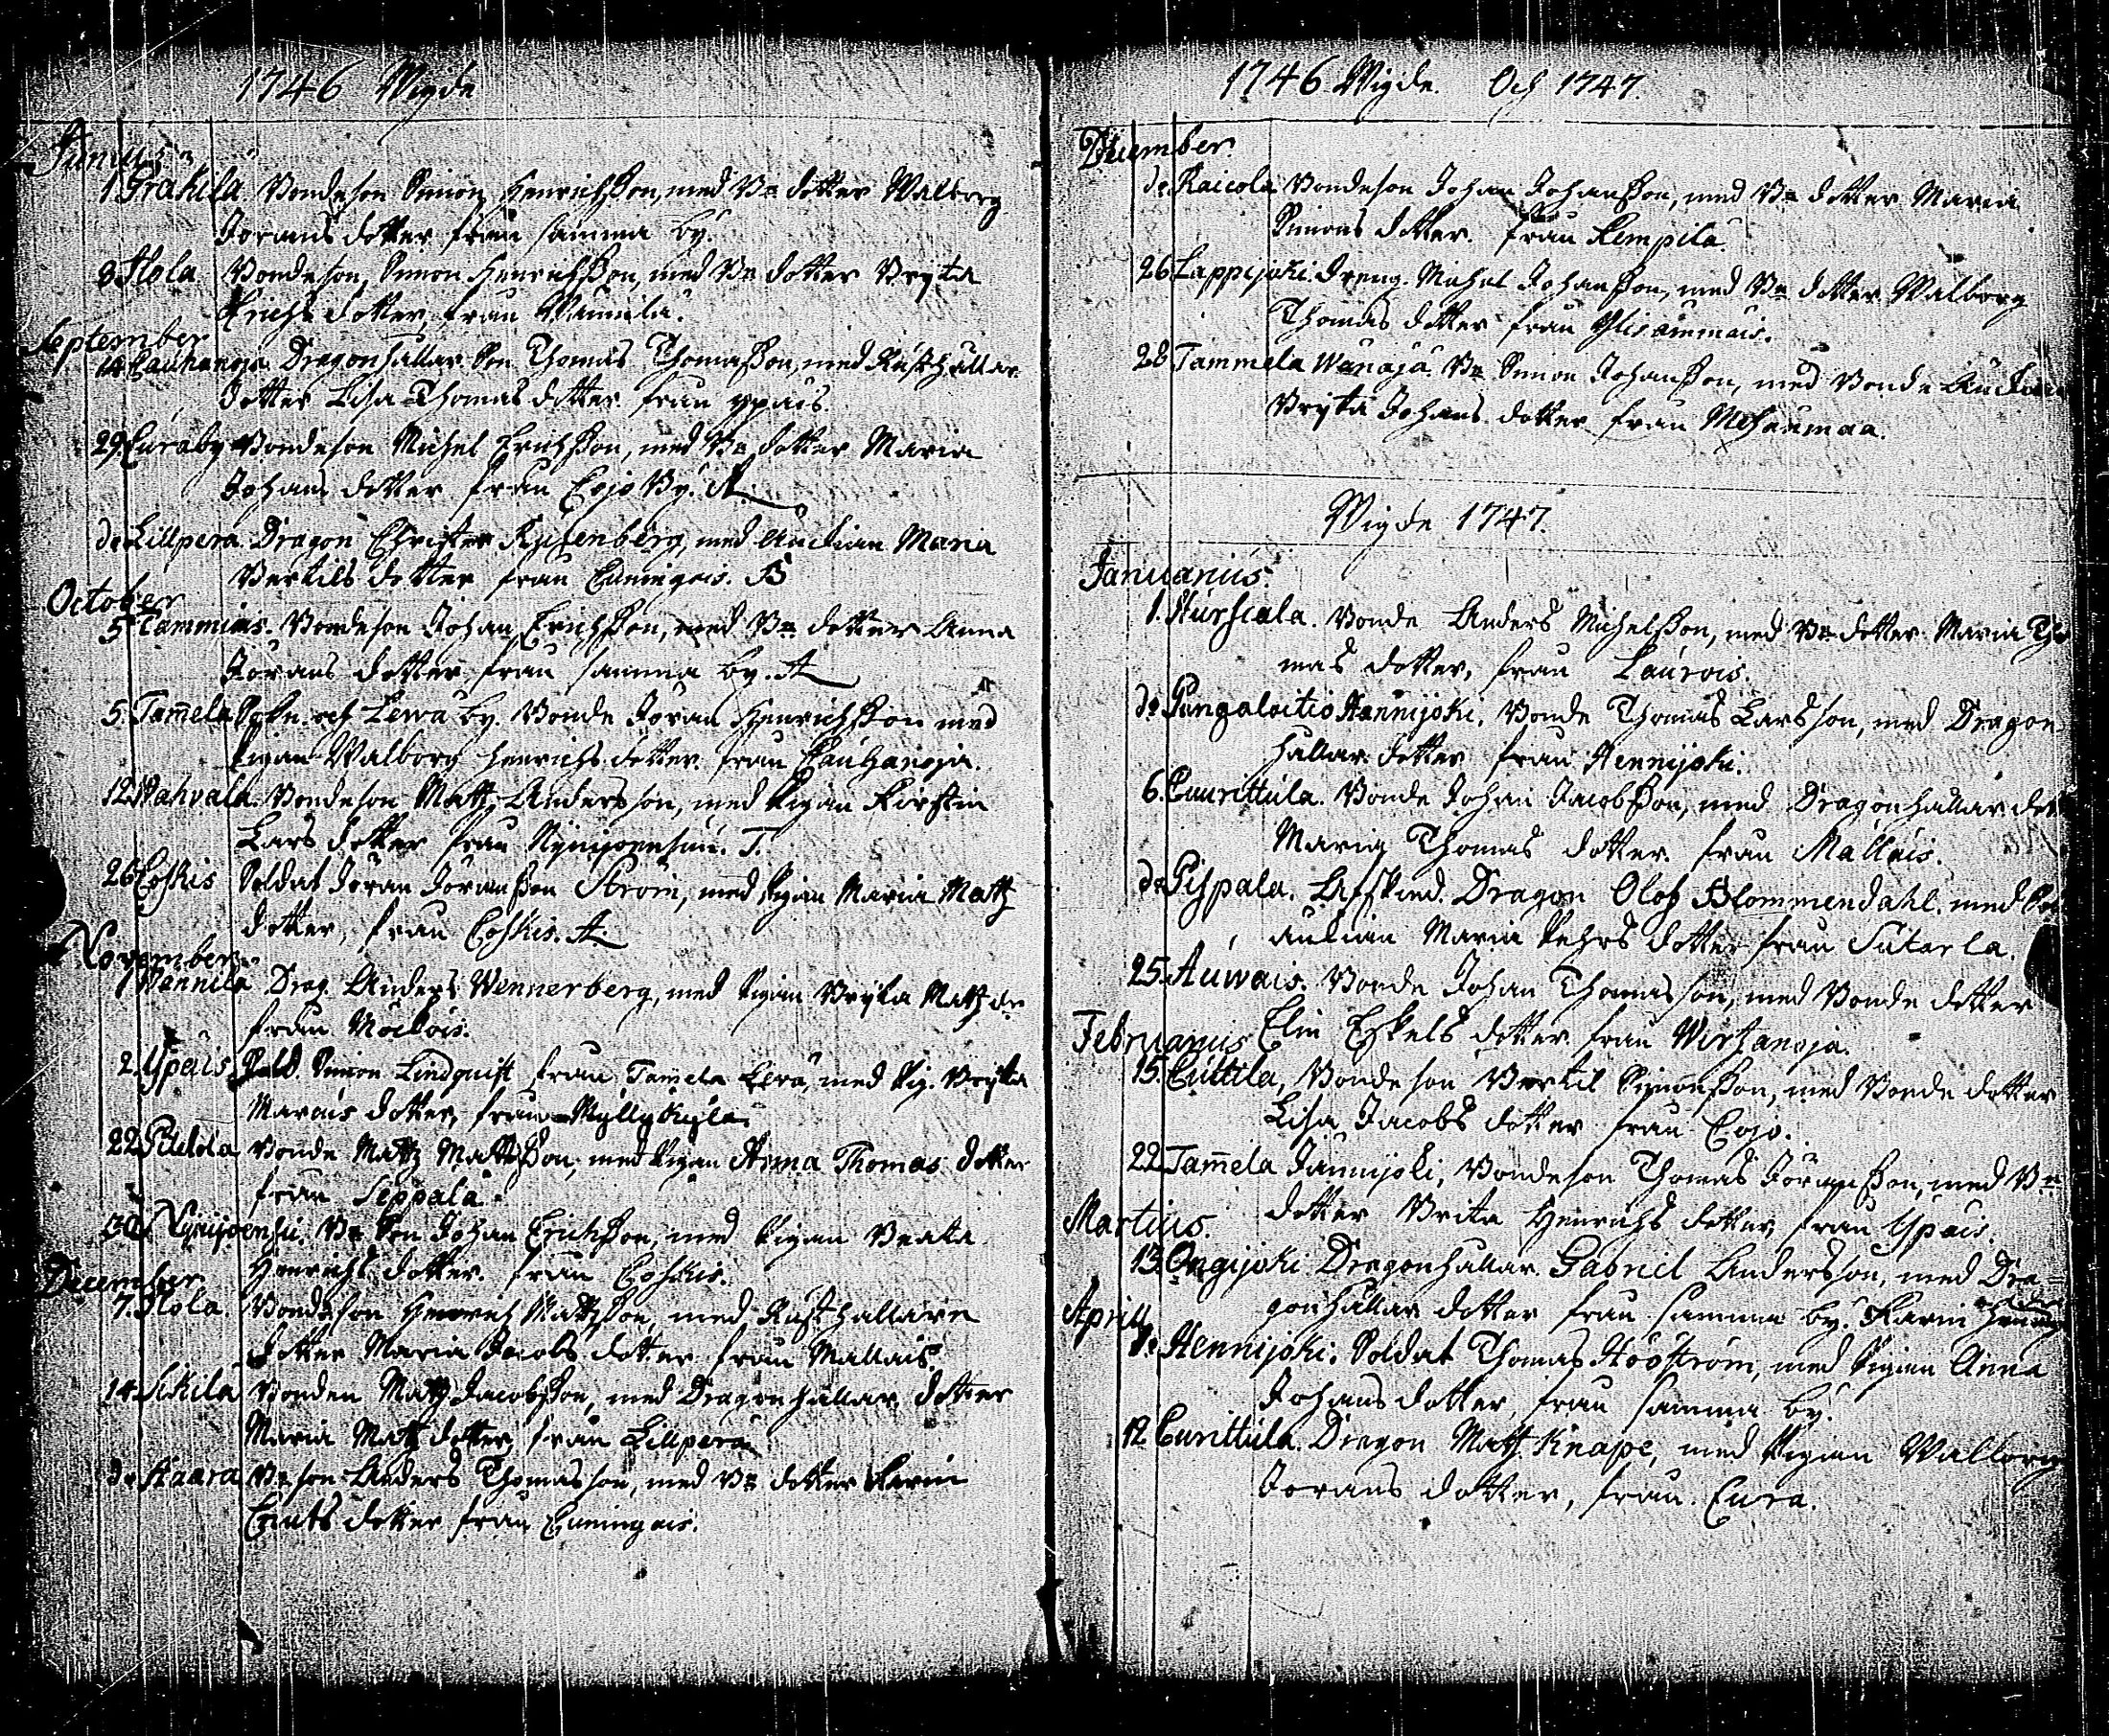 1746 Wigde
Junius
1. Präkila. Bondeson Simon Henrichsson, med Be dotter Walborg
Jorans dotter från samma by.
8 Hola Bondeson, Simon Henrichsson, med Be dotter Bryta
Erichs dotter, från
September
14 Cauhanoja Dragonhållar Son Thomas Thomasson, med Rusthållar
dotter Lisa Thomas dotter från ypäis.
29. Euraby Bondeson Michel Erichsson, med Be dotter Maria
Johans dotter från Cojo By. A
do Lillpera. Dragon Christer Rusenberg, med Änckian Maria
Bertils dotter från Cuningois. B
October
5 Tammiais. Bondeson Johan Erichsson, med Be dotter Anna
Jorans dotter från samma by. A
5 Tam̄ela Sokn och Lewa by. Bonde Joran Henrichsson med
Pigan Walborg Henrichs dotter från Cauhanoja.
12. Wahvala. Bondeson Matz Andersson, med Pigan Kirstin
Lars dotter från T.
26 Coskis Soldat Joran Joransson Ström, med Pigan Maria Matz
dotter, från Coskis. A
November
1 Wennilä Drag. Anders Wennerberg, med Pigan Bryta Matz dr
från
2. Ypäis Sold. Simon Lindquist från Tam̄ela Lewa, med Pig. Bryta
dotter, från Myllykylä.
22 Bonde Matz Matzson, med Pigan Anna Thomas dotter
från Seppälä.
30. Be Son Johan Erichsson, med Pigan Beata
Henrichs dotter. från Coskis.
December
7. Hola. Bondeson Henrich Matzson, med Rusthållare
dotter Maria Jacobs dotter från Mallais.
14. Sikilä Bonden Matz Jacobsson, med Dragonhållar dotter
Maria Matz dotter, från Lillpera
do Haara Be son Anders Thomasson, med Be dotter Karin
Knuts dotter från Cuningois.
1746 Wigde. Och 1747.
December.
do Raicola Bondeson Johan Johansson, med Be dotter Maria
Simons dotter. från Kempila
26 Lappijoki. Dreng. Michel Johansson, med Be dotter Walborg
Thomas dotter från Ylisämmäis.
28 Tammela Wanaja. Be Simon Johansson, med Bonde
Bryta Johans dotter från
Wigde 1747.
Januarius.
1. Hurscala. Bonde Anders Michelsson, med Be dotter Maria Tho
mas dotter, från Laurois.
do Pungaloitio Hannijoki, Bonde Thomas Larsson, med Dragon
hållar dotter från Hennijoki.
6. Cuurittula. Bonde Johan Jacobsson, med Dragonhållar dot
Maria Thomas dotter. från Mallais.
do Pispala. Afskied. Dragon Olof Blommendahl. med
änkian Maria Pehrs dotter från Sutarla.
25. Auwais. Bonde Johan Thomasson, med Bonde dotter
Elin Eskels dotter från Wirtanoja.
Februarius
15. Cuttila, Bondeson Bertil Simonsson, med Bonde dotter
Lisa Jacobs dotter från Cojo.
22. Tam̄ela Jännijoki, Bondeson Thomas Joransson, med Be
dotter Brita Henrichs dotter, från Ypäis.
Martius.
13. Ongijoki Dragonhållar. Gabriel Andersson, med Dra=
gonhållar dotter från samma by. Karin
Aprill
do Hennijoki. Soldat Thomas Hööström, med Pigan Anna
Johans dotter, från samma by.
12 Curittula. Dragon Matz Knape, med Pigan Walborg
Jorans dotter, från. Eura.